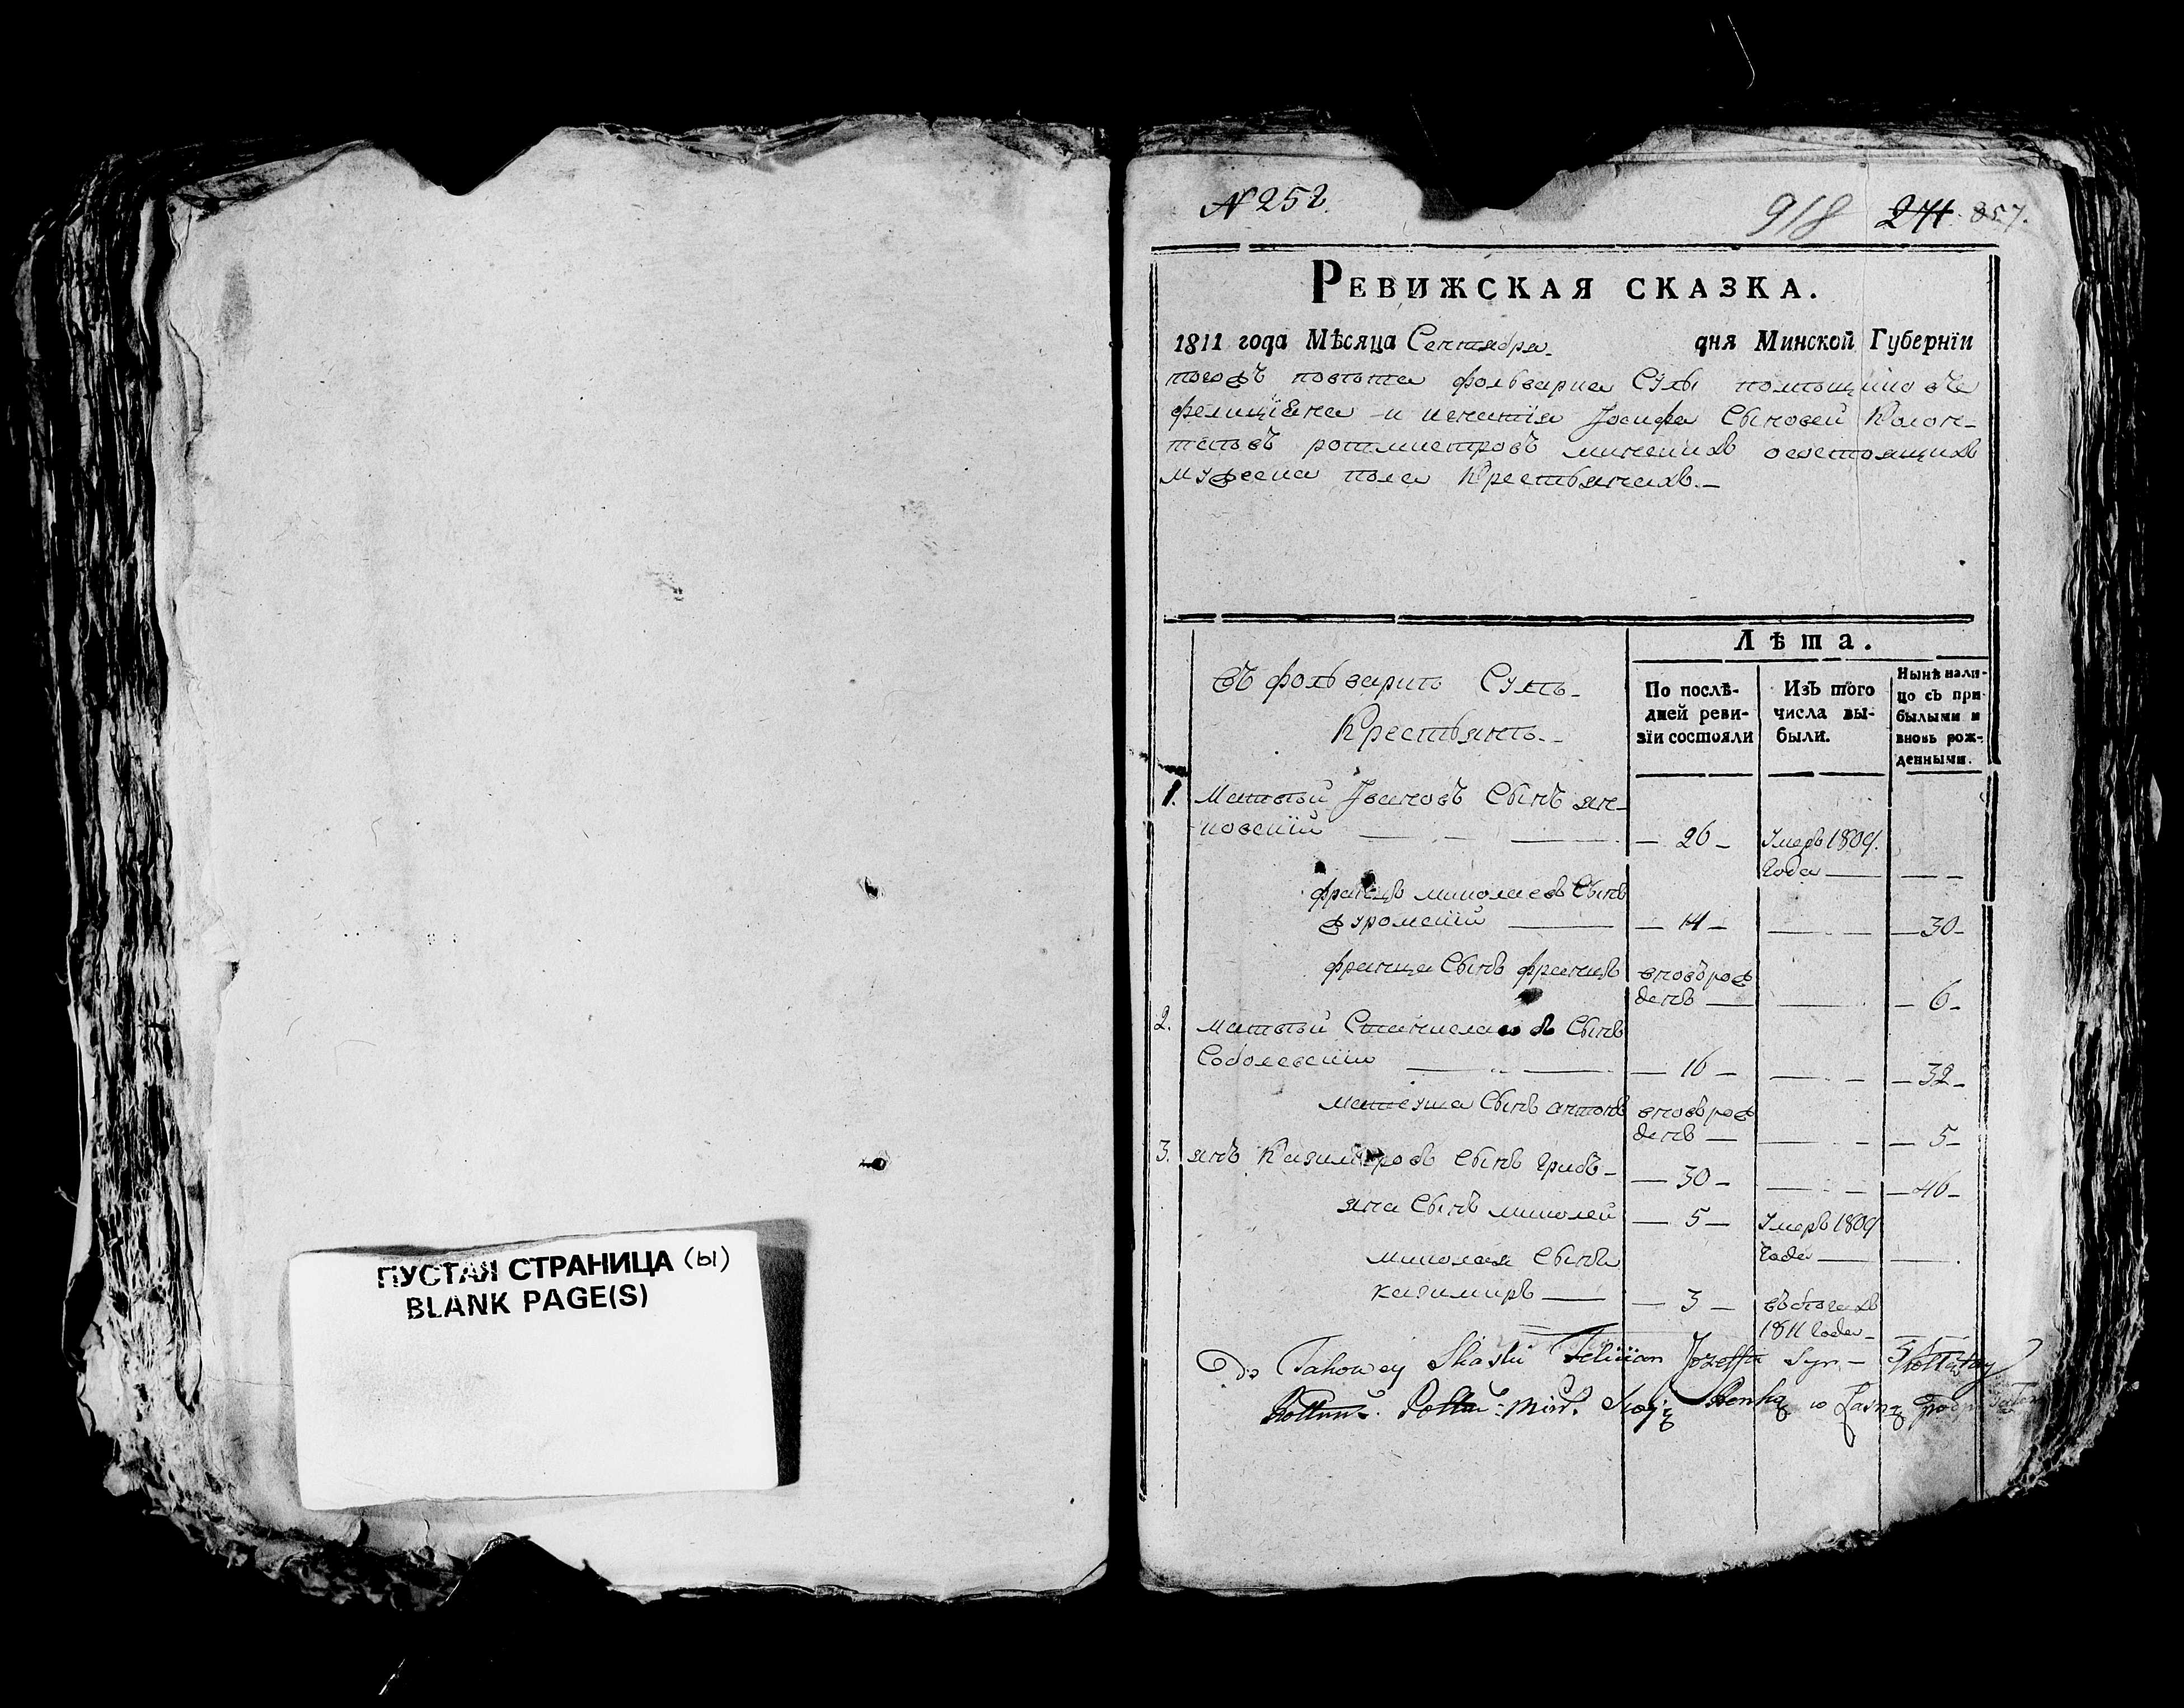 ПУСТАЯ СТРАНИЦА (ы)
BLANK PAGE(S)
№ 252.
918 271 357.
РЕВИЖСКАЯ СКАЗКА.
1811 года Мѣсяца Сентября дня Минской Губернїи
тогожъ повѣта фольварка Сулы помѣщиковъ
фелиціяна и игнатія Іосифа Сыновей Колон-
таевъ ротмистровъ минскихъ осостоящихъ
мужеска пола Крестьянахъ.
Лѣта.
въ фольваркѣ Сулѣ
Крестьянъ
По послѣ-
дней реви-
зїи состояли
Изъ того
числа вы-
были.
Нынѣ нали-
цо съ при-
былыми и
вновь рож-
денными.
1. Матвѣй Ивановъ Сынъ ян-
ковскій — 26 — Умеръ 1809.
Года — —
францъ миколаевъ Сынъ
журомскій — 14 — — 30 —
франца Сынъ францъ вновърож
денъ — — 6 —
2. матвѣй Станиславовъ Сынъ
Соболевскій — 16 — — 32 —
матеуша Сынъ антонъ вновърож
денъ — — 5 —
3. янъ Казимировъ Сынъ Грибъ — 30 — — 46 —
яна Сынъ миколай — 5 — Умеръ 1809
года —
миколая Сынъ
казимиръ — 3 — въбѣгахъ
1811 года —
Do Takowey Skaski Felician Jozeffa Syn Kołłątay
Rottm. Min. Swoją Ręnką w Łasną